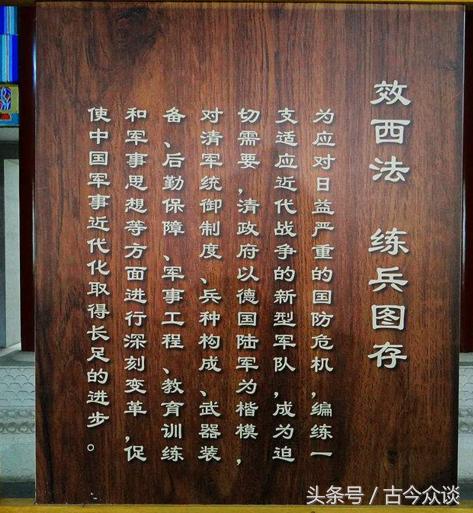 效西法 练兵图存
为应对日益严重的国防危机,编练一
支适应近代战争的新型军队,成为迫
切需要,清政府以德国陆军为楷模,
对清军统御制度、兵种构成、武器装
备、后勤保障、军事工程、教育训练
和军事思想等方面进行深刻变革,促
使中国军事近代化取得长足的进步。
头条号/古今众谈